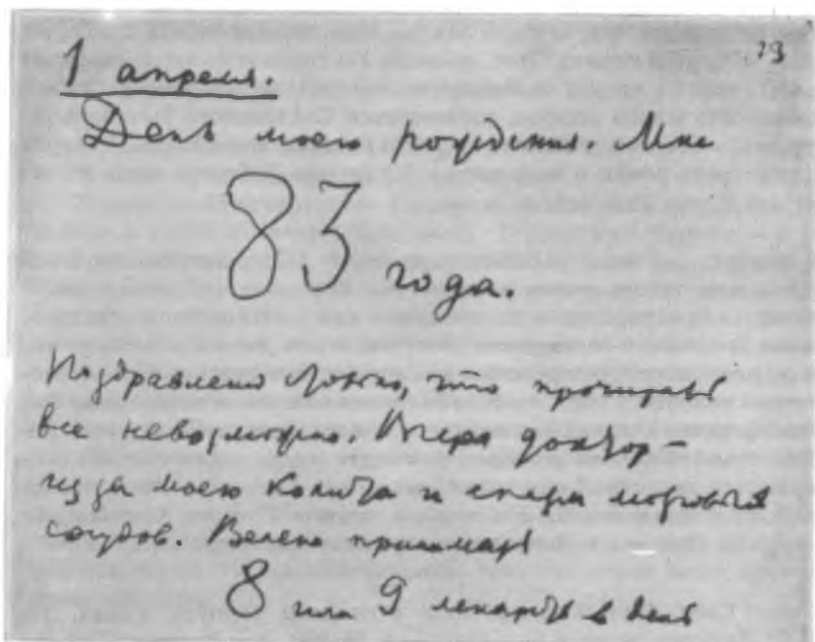 73
1 апреля.
День моего рождения. Мне
83 года.
Поздравлений столько, что прочитать
все невозможно. Вчера доктор –
из за моего колита и спазм мозговых
сосудов. Велено принимать
8 или 9 лекарств в день